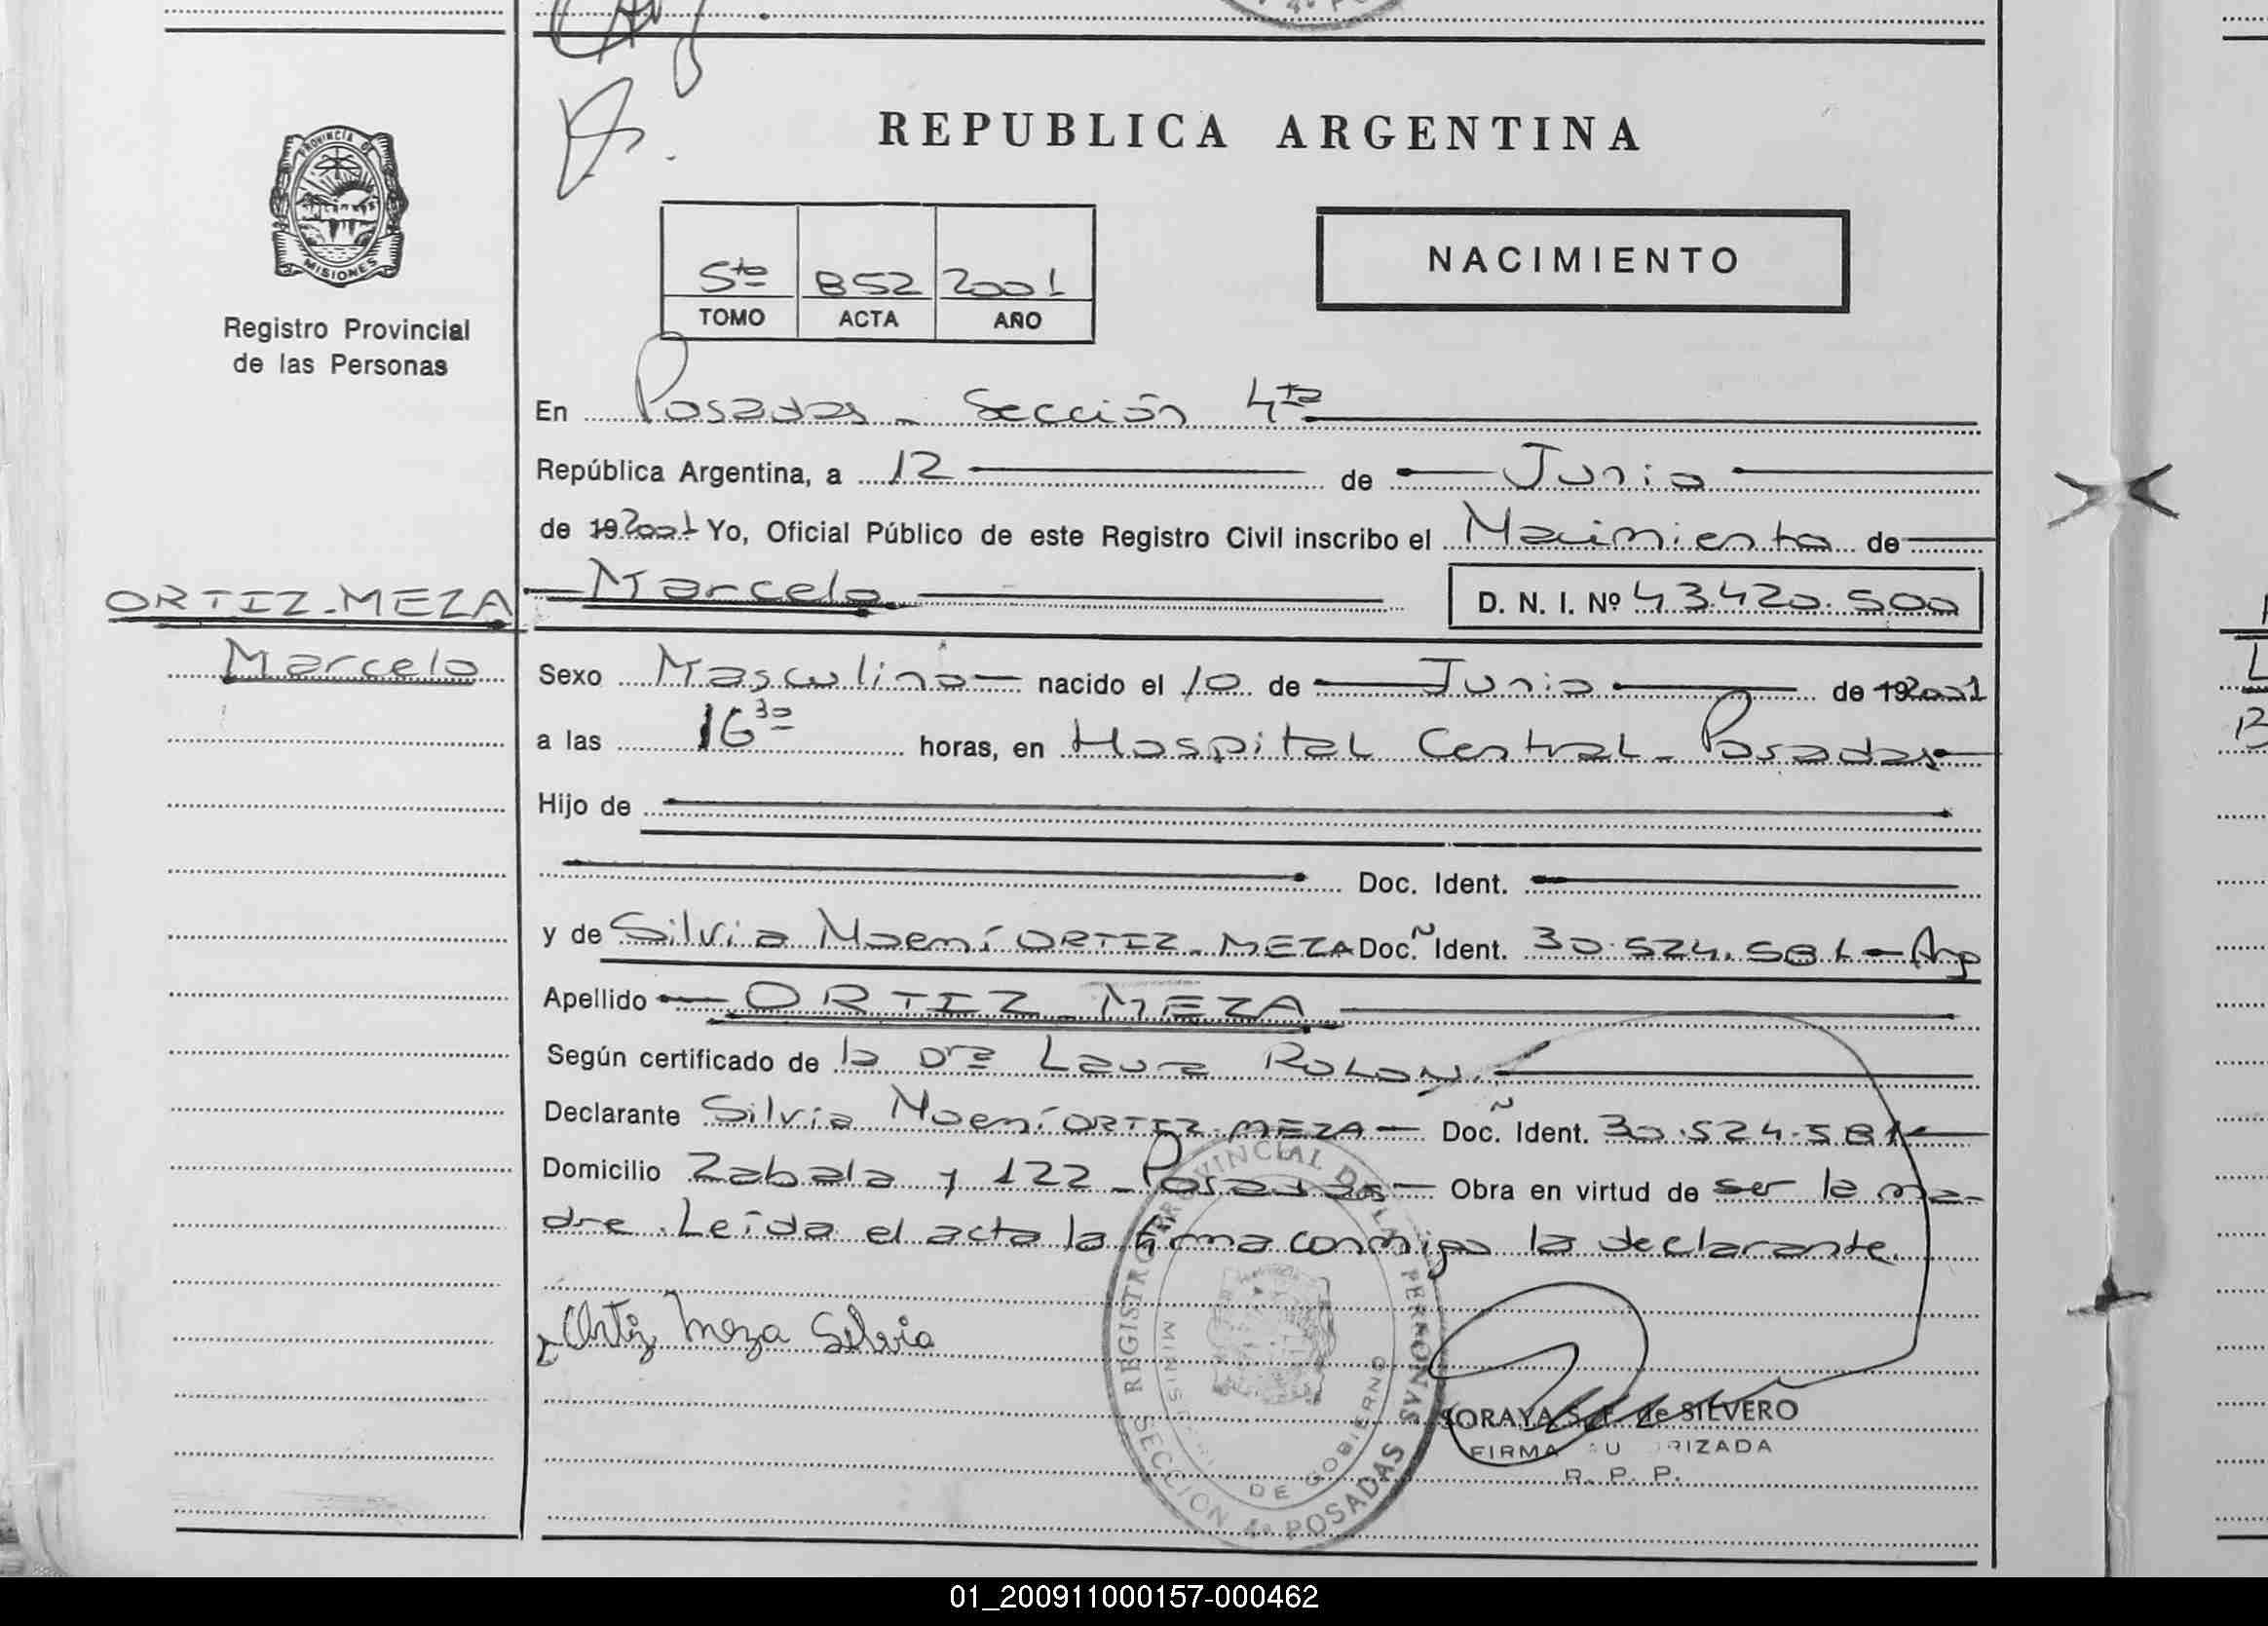 REPUBLICA ARGENTINA
PROVINCIA DE
MISIONES
Registro Provincial
de las Personas
5to 852 2001
TOMO ACTA AÑO
NACIMIENTO
En Posadas - Sección 4ta
República Argentina, a 12 de Junio
de 19 2001 Yo, Oficial Público de este Registro Civil inscribo el Nacimiento de
ORTIZ-MEZA Marcelo D. N. I. Nº 43.420.500
Marcelo
Sexo Masculino nacido el 10 de Junio de 19 2001
a las 16 30 horas, en Hospital Central - Posadas
Hijo de
Doc. Ident.
y de Silvia Noemí ORTIZ-MEZA Doc. Ident. 30.524.581 - Arg
Apellido ORTIZ-MEZA
Según certificado de la Dra Laura ROLON.
Declarante Silvia Noemí ORTIZ-MEZA Doc. Ident. 30.524.581
Domicilio Zabala y 122 - Posadas Obra en virtud de ser la ma-
dre. Leída el acta la firma conmigo la declarante.
Ortiz Meza Silvia
REGISTRO PROVINCIAL DE LAS PERSONAS
MINISTERIO DE GOBIERNO
SECCION 4a POSADAS
SORAYA S. F. de SILVERO
FIRMA AUTORIZADA
R. P. P.
01_200911000157-000462